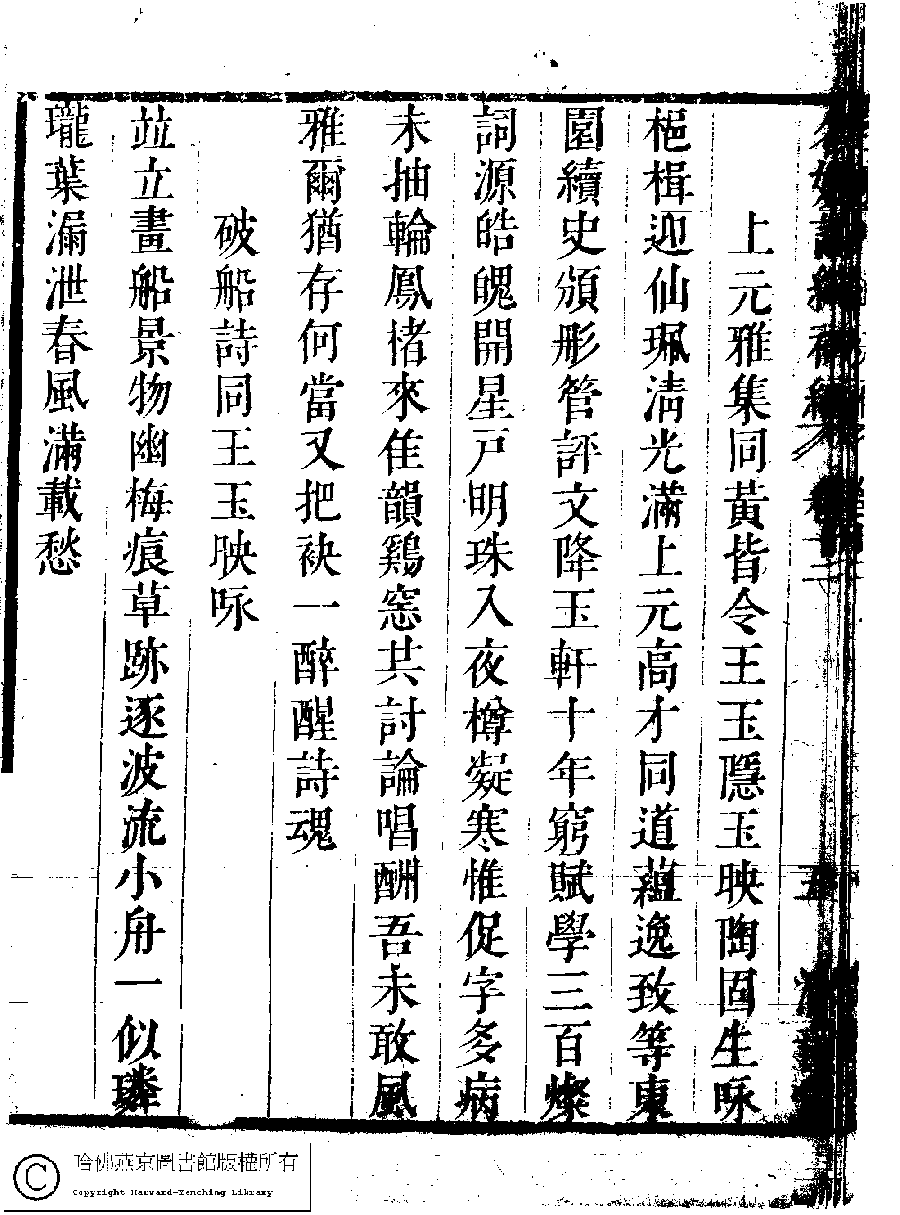 上元雅集同黃皆令王玉隱玉映陶固生咏
梔楫迎仙珮清光滿上元高才同道蘊逸致等東
園續史頒彤管評文降玉軒十年窮賦學三百燦
詞源皓魄開星戸明珠入夜樽凝寒惟促字多病
未抽輪鳳楮來佳韻鷄窓共討論唱酬吾未敢風
雅爾猶存何當又把袂一醉醒詩魂
破船詩同王玉映咏
竝立畫船景物幽梅痕草跡逐波流小舟一似璘
瓏葉漏泄春風滿載愁
哈佛燕京圖書館版權所有
Copyright Harvard-Yenching Library